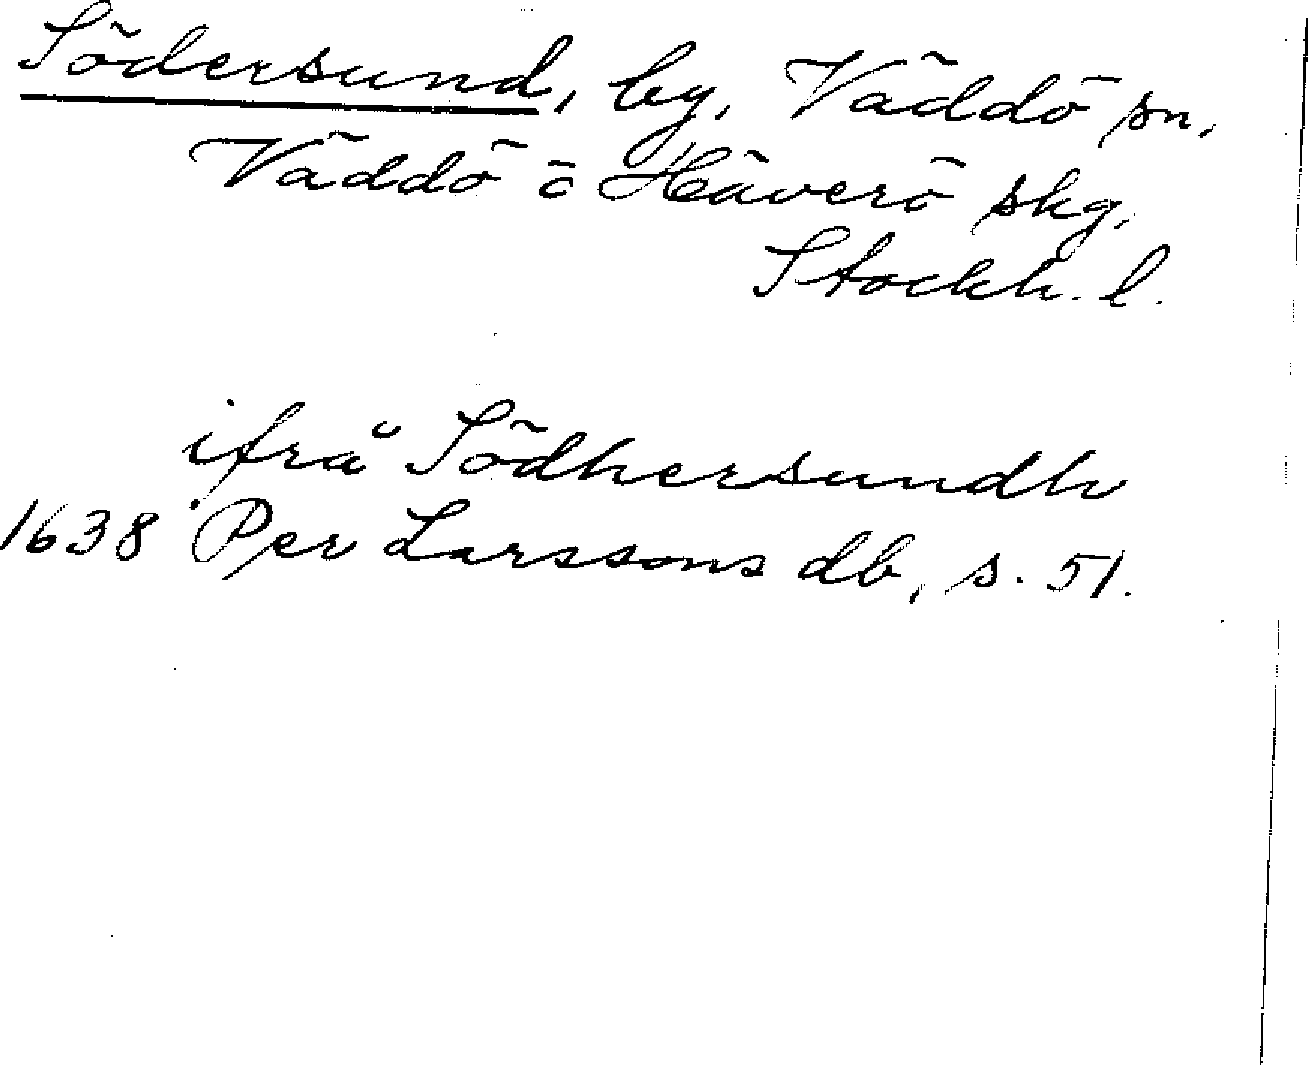 Södersund, by, Väddö sn,
Väddö o Häverö skg,
Stockh. l.
ifrå Södhersundh
1638 Per Larssons db, s. 51.